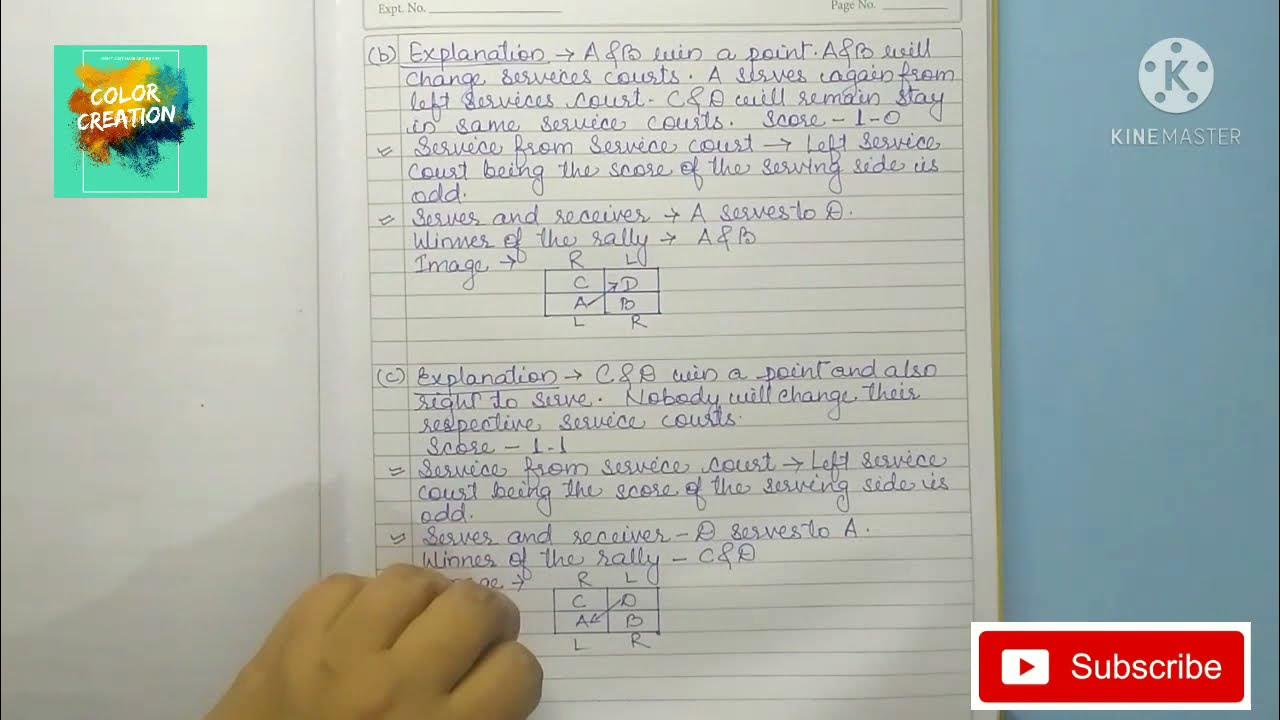 Expt. No.
Page No.
COLOR
CREATION
KINEMASTER
(b) Explanation → A & B win a point. A & B will
change serveces courts. A serves again from
left services court. C & D will remain stay
in same service courts. Score - 1-0
= Service from Service court → Left Service
court being the score of the serving side is
odd.
= Server and receiver → A serves to D.
Winner of the rally → A & B
Image → R L
C D
A B
L R
(c) Explanation → C & D win a point and also
right to serve. Nobody will change their
respective service courts.
Score - 1-1
= Service from service court → Left service
court being the score of the serving side is
odd.
= Server and receiver - D serves to A.
Winner of the rally - C & D
R L
C D
A B
L R
Subscribe